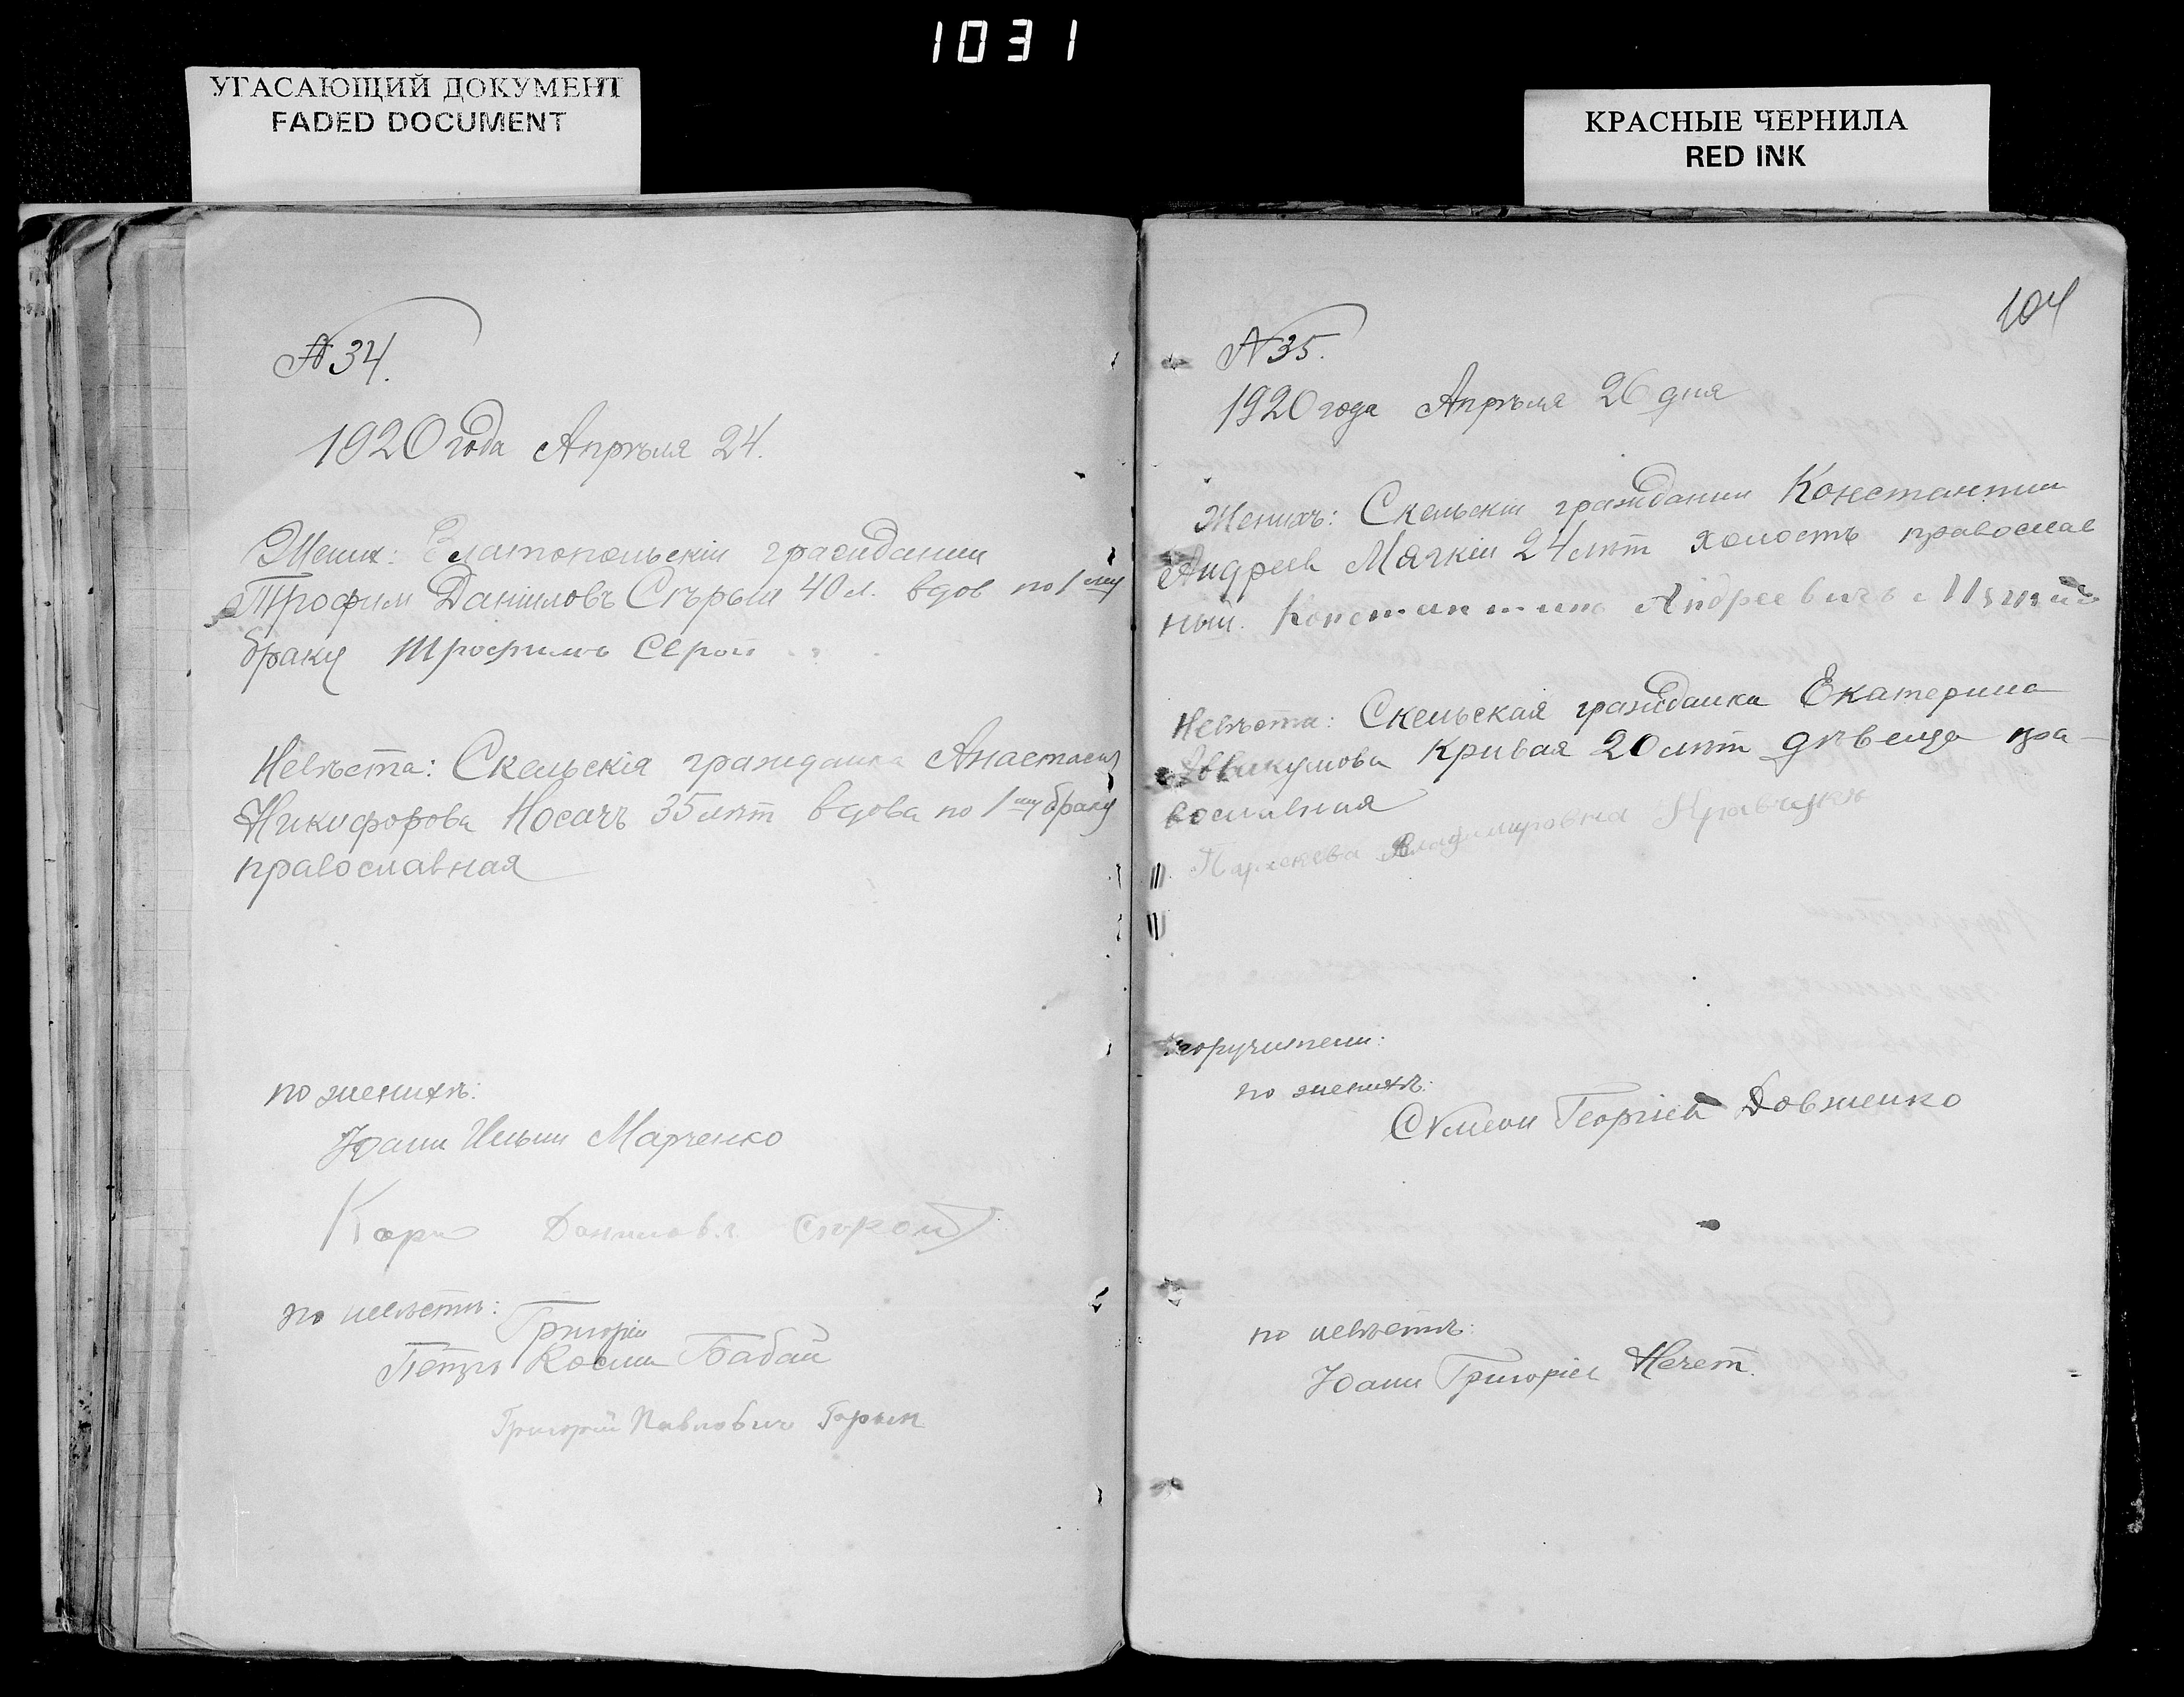 1031
УГАСАЮЩИЙ ДОКУМЕНТ
FADED DOCUMENT
КРАСНЫЕ ЧЕРНИЛА
RED INK
№ 34.
1920 года Апрѣля 24.
Жених: Златопольскій гражданин
Трофим Даниловъ Сѣрый 40 л. вдов по 1 му
браку Трофимъ Серой
Невѣста: Скельскія гражданка Анастасия
Никифорова Носачъ 35 лѣт вдова по 1 му браку
православная
по женихѣ:
Іоанн Ильин Марченко
Карп Данилов
по невѣстѣ:
Григорій
Петръ Косьми Бабай
Григорій Павлович
104
№ 35.
1920 года Апрѣля 26 дня
Женихъ: Скельскій гражданин Константин
Андреев Мягкій 24 лѣт холостъ православ
ный. Константинъ Андреевичъ Мягкий
Невѣста: Скельская гражданка Екатерина
Аввакумова Кривая 20 лѣт дѣвица пра-
вославная
Владимировна
поручители:
по женихѣ:
Симеон Георгіев Довженко
по невѣстѣ:
Іоанн Григоріев Нечет.